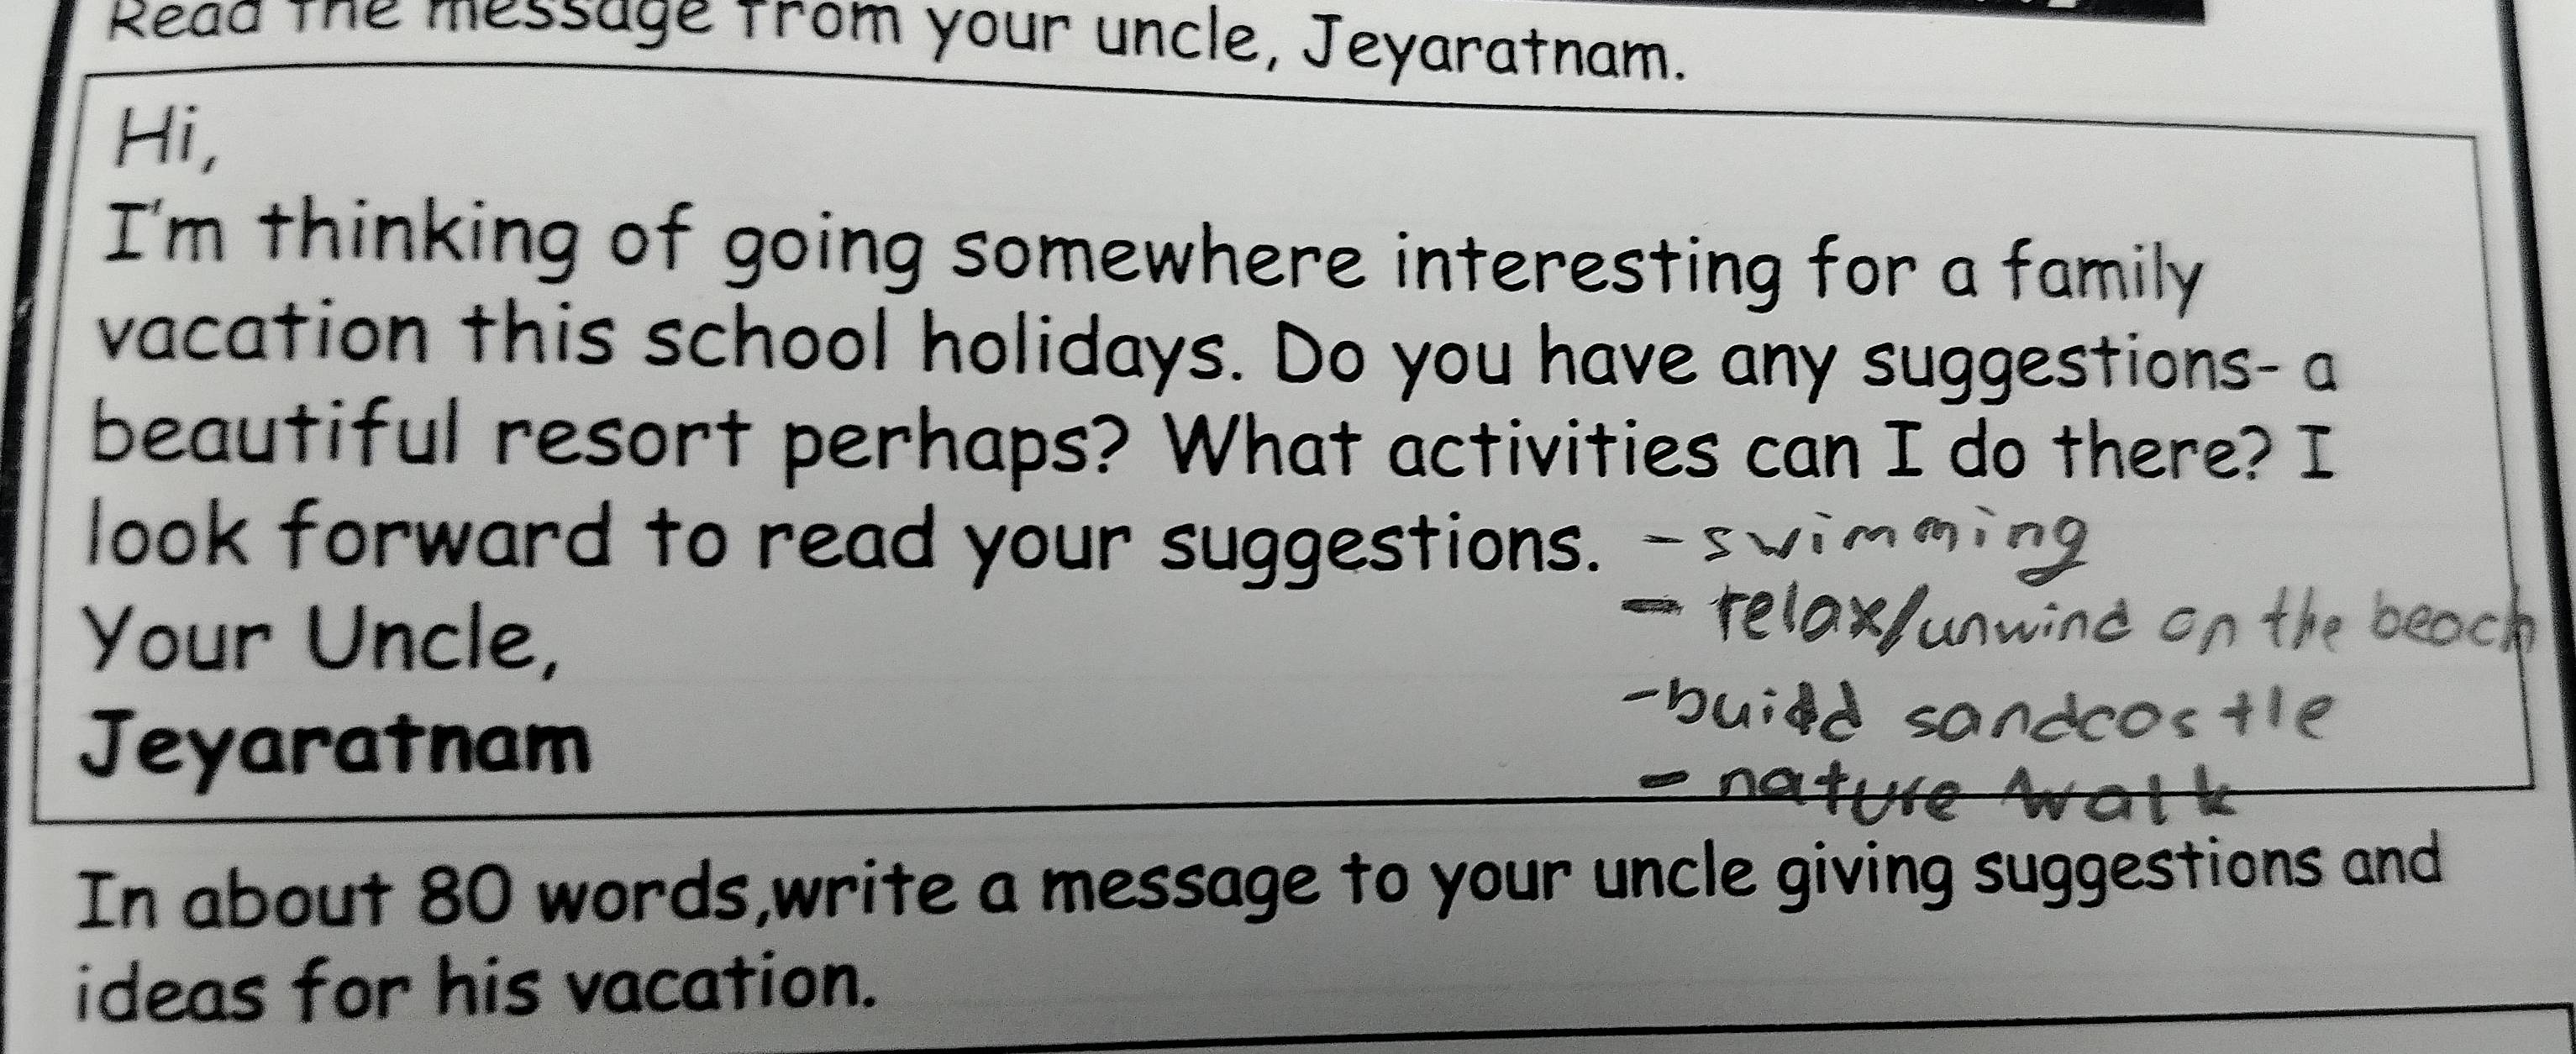 Read the message from your uncle, Jeyaratnam.
Hi,
I'm thinking of going somewhere interesting for a family
vacation this school holidays. Do you have any suggestions- a
beautiful resort perhaps? What activities can I do there? I
look forward to read your suggestions. - swimming
Your Uncle, - relax/unwind on the beach
- build sandcastle
Jeyaratnam
- nature walk
In about 80 words,write a message to your uncle giving suggestions and
ideas for his vacation.